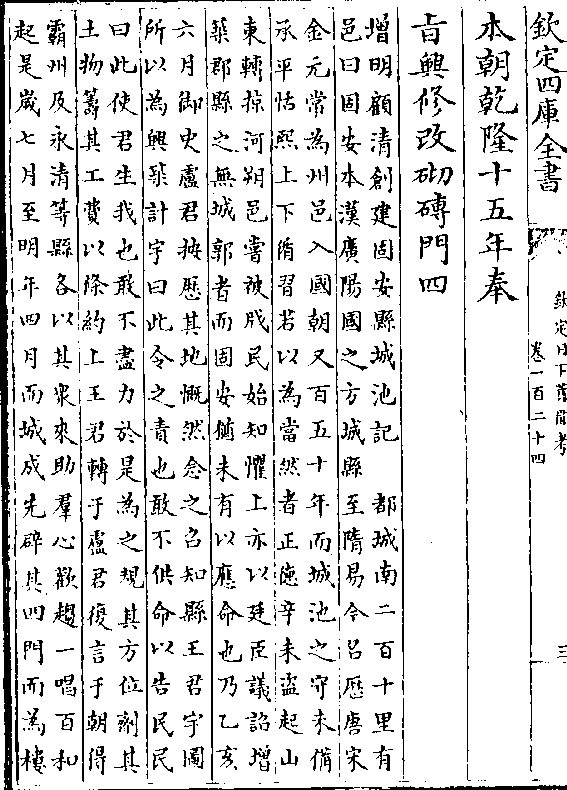 欽定四庫全書
欽定日下舊聞考
卷一百二十四
三
本朝乾隆十五年奉
旨興修改砌磚門四
增明顧清創建固安縣城池記 都城南二百十里有
邑曰固安本漢廣陽國之方城縣至隋易今名歷唐宋
金元常為州邑入國朝又百五十年而城池之守未備
承平恬熙上下循習若以為當然者正德辛未盜起山
東轉掠河朔邑嘗被戕民始知懼上亦以廷臣議詔增
築郡縣之無城郭者而固安猶未有以應命也乃乙亥
六月御史盧君按歷其地慨然念之召知縣王君宇圖
所以為興築計宇曰此令之責也敢不供命以告民民
曰此使君生我也敢不盡力於是為之規其方位劑其
土物籌其工費以條約上王君轉于盧君復言于朝得
霸州及永清等縣各以其衆來助羣心歡趨一唱百和
起是嵗七月至明年四月而城成先辟其四門而為樓